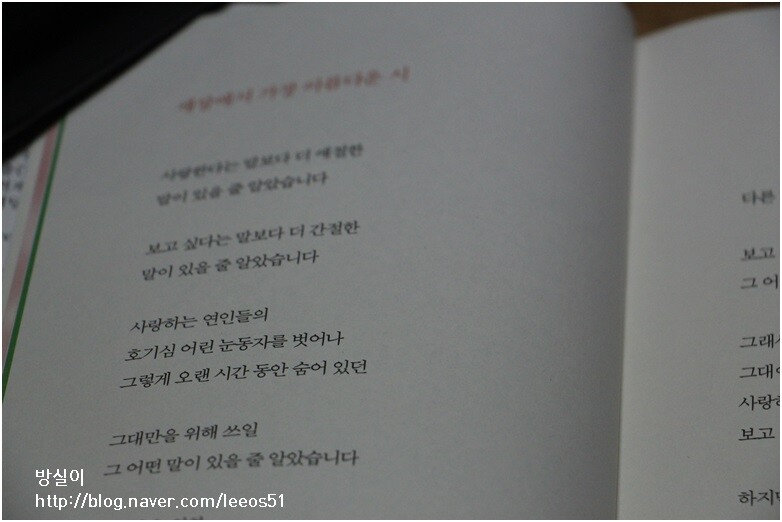 세상에서 가장 아름다운 시
사랑한다는 말보다 더 애절한
말이 있을 줄 알았습니다
보고 싶다는 말보다 더 간절한
말이 있을 줄 알았습니다
사랑하는 연인들의
호기심 어린 눈동자를 벗어나
그렇게 오랜 시간 동안 숨어 있던
그대만을 위해 쓰일
그 어떤 말이 있을 줄 알았습니다
다른
보고
그 어
그래서
그대
사랑하
보고
하지만
방실이
http://blog.naver.com/leeos51